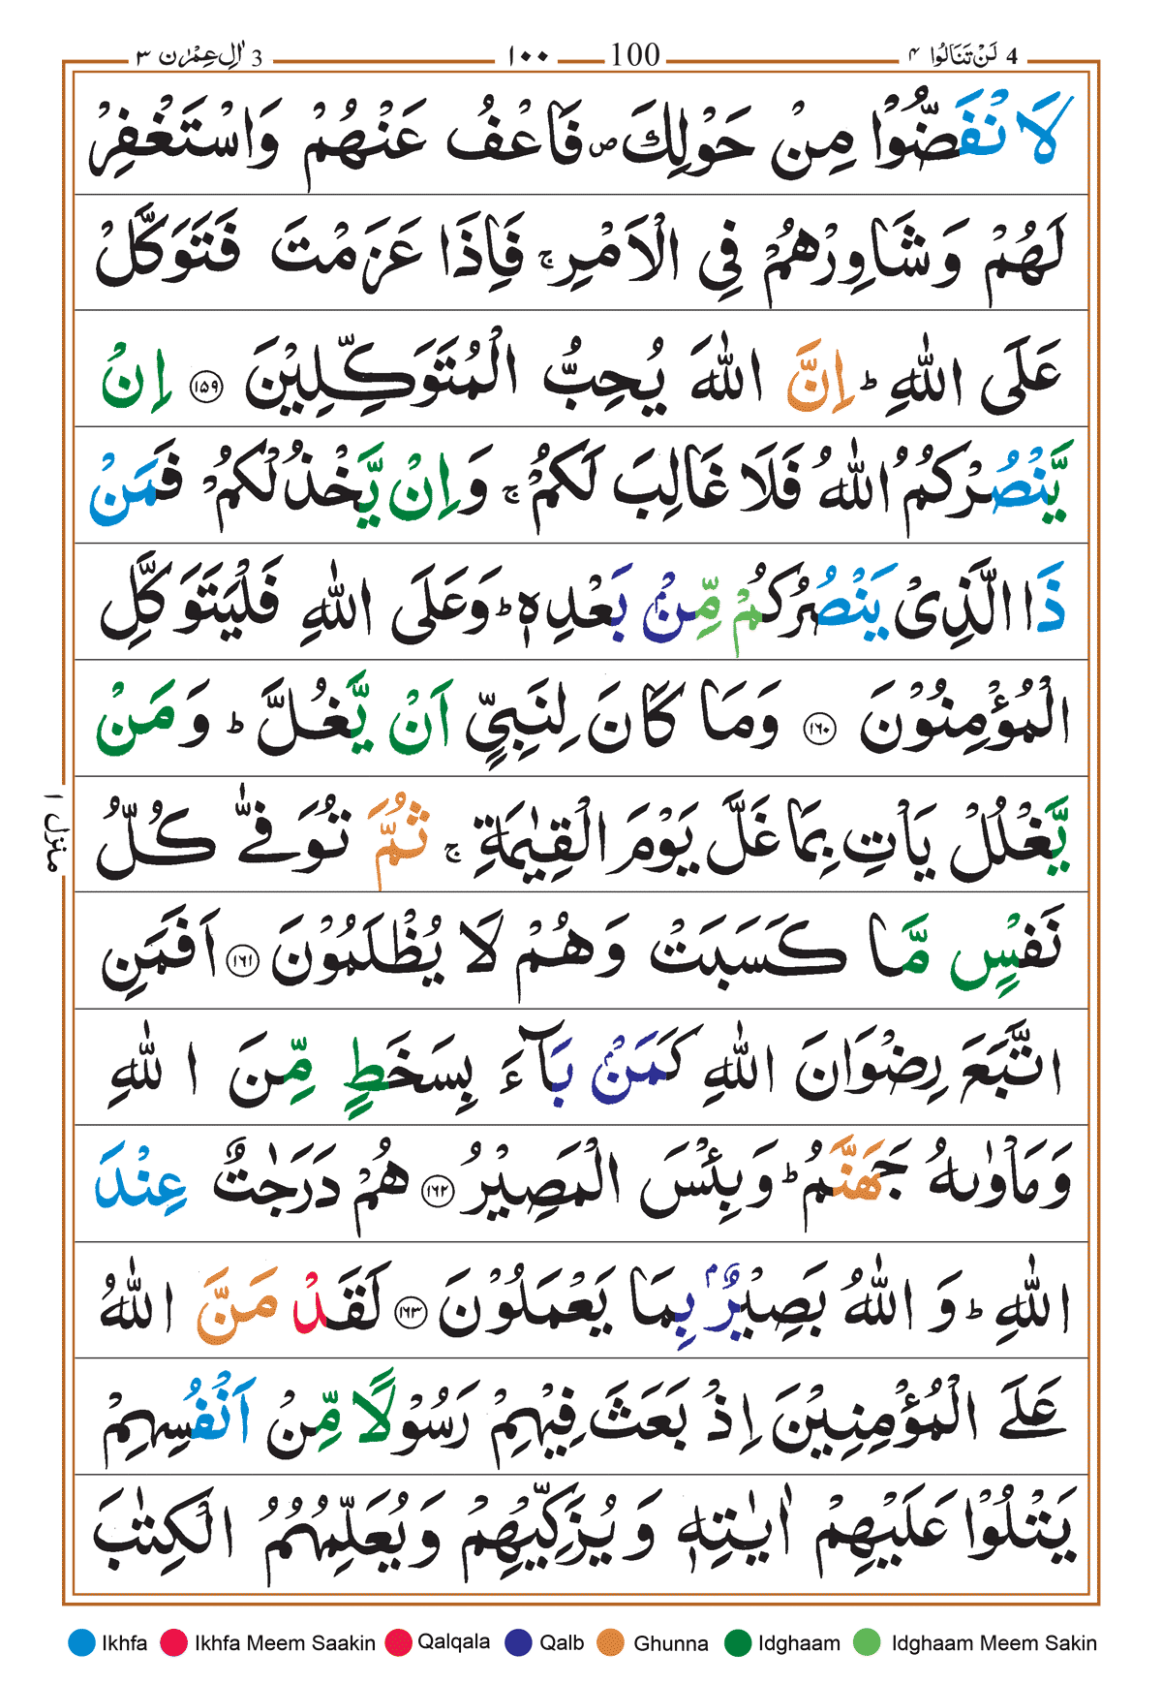 4 لَنْ تَنَالُوا ۴ 100 ۱۰۰ 3 اٰلِ عِمْرٰن ۳
لَا نْفَضُّوْا مِنْ حَوْلِكَ ۪ فَاعْفُ عَنْهُمْ وَاسْتَغْفِرْ
لَهُمْ وَشَاوِرْهُمْ فِي الْاَمْرِ ۚ فَاِذَا عَزَمْتَ فَتَوَكَّلْ
عَلَى اللّٰهِ ؕ اِنَّ اللّٰهَ يُحِبُّ الْمُتَوَكِّلِيْنَ ۝۱۵۹ اِنْ
يَّنْصُرْكُمُ اللّٰهُ فَلَا غَالِبَ لَكُمْ ۚ وَاِنْ يَّخْذُلْكُمْ فَمَنْ
ذَا الَّذِيْ يَنْصُرُكُمْ مِّنْۢ بَعْدِهٖ ؕ وَعَلَى اللّٰهِ فَلْيَتَوَكَّلِ
الْمُؤْمِنُوْنَ ۝۱۶۰ وَمَا كَانَ لِنَبِيٍّ اَنْ يَّغُلَّ ؕ وَمَنْ
يَّغْلُلْ يَاْتِ بِمَا غَلَّ يَوْمَ الْقِيٰمَةِ ۚ ثُمَّ تُوَفّٰى كُلُّ
نَفْسٍ مَّا كَسَبَتْ وَهُمْ لَا يُظْلَمُوْنَ ۝۱۶۱ اَفَمَنِ
اتَّبَعَ رِضْوَانَ اللّٰهِ كَمَنْۢ بَآءَ بِسَخَطٍ مِّنَ اللّٰهِ
وَمَاْوٰىهُ جَهَنَّمُ ؕ وَبِئْسَ الْمَصِيْرُ ۝۱۶۲ هُمْ دَرَجٰتٌ عِنْدَ
اللّٰهِ ؕ وَاللّٰهُ بَصِيْرٌۢ بِمَا يَعْمَلُوْنَ ۝۱۶۳ لَقَدْ مَنَّ اللّٰهُ
عَلَى الْمُؤْمِنِيْنَ اِذْ بَعَثَ فِيْهِمْ رَسُوْلًا مِّنْ اَنْفُسِهِمْ
يَتْلُوْا عَلَيْهِمْ اٰيٰتِهٖ وَيُزَكِّيْهِمْ وَيُعَلِّمُهُمُ الْكِتٰبَ
منزل ۱
Ikhfa Ikhfa Meem Saakin Qalqala Qalb Ghunna Idghaam Idghaam Meem Sakin